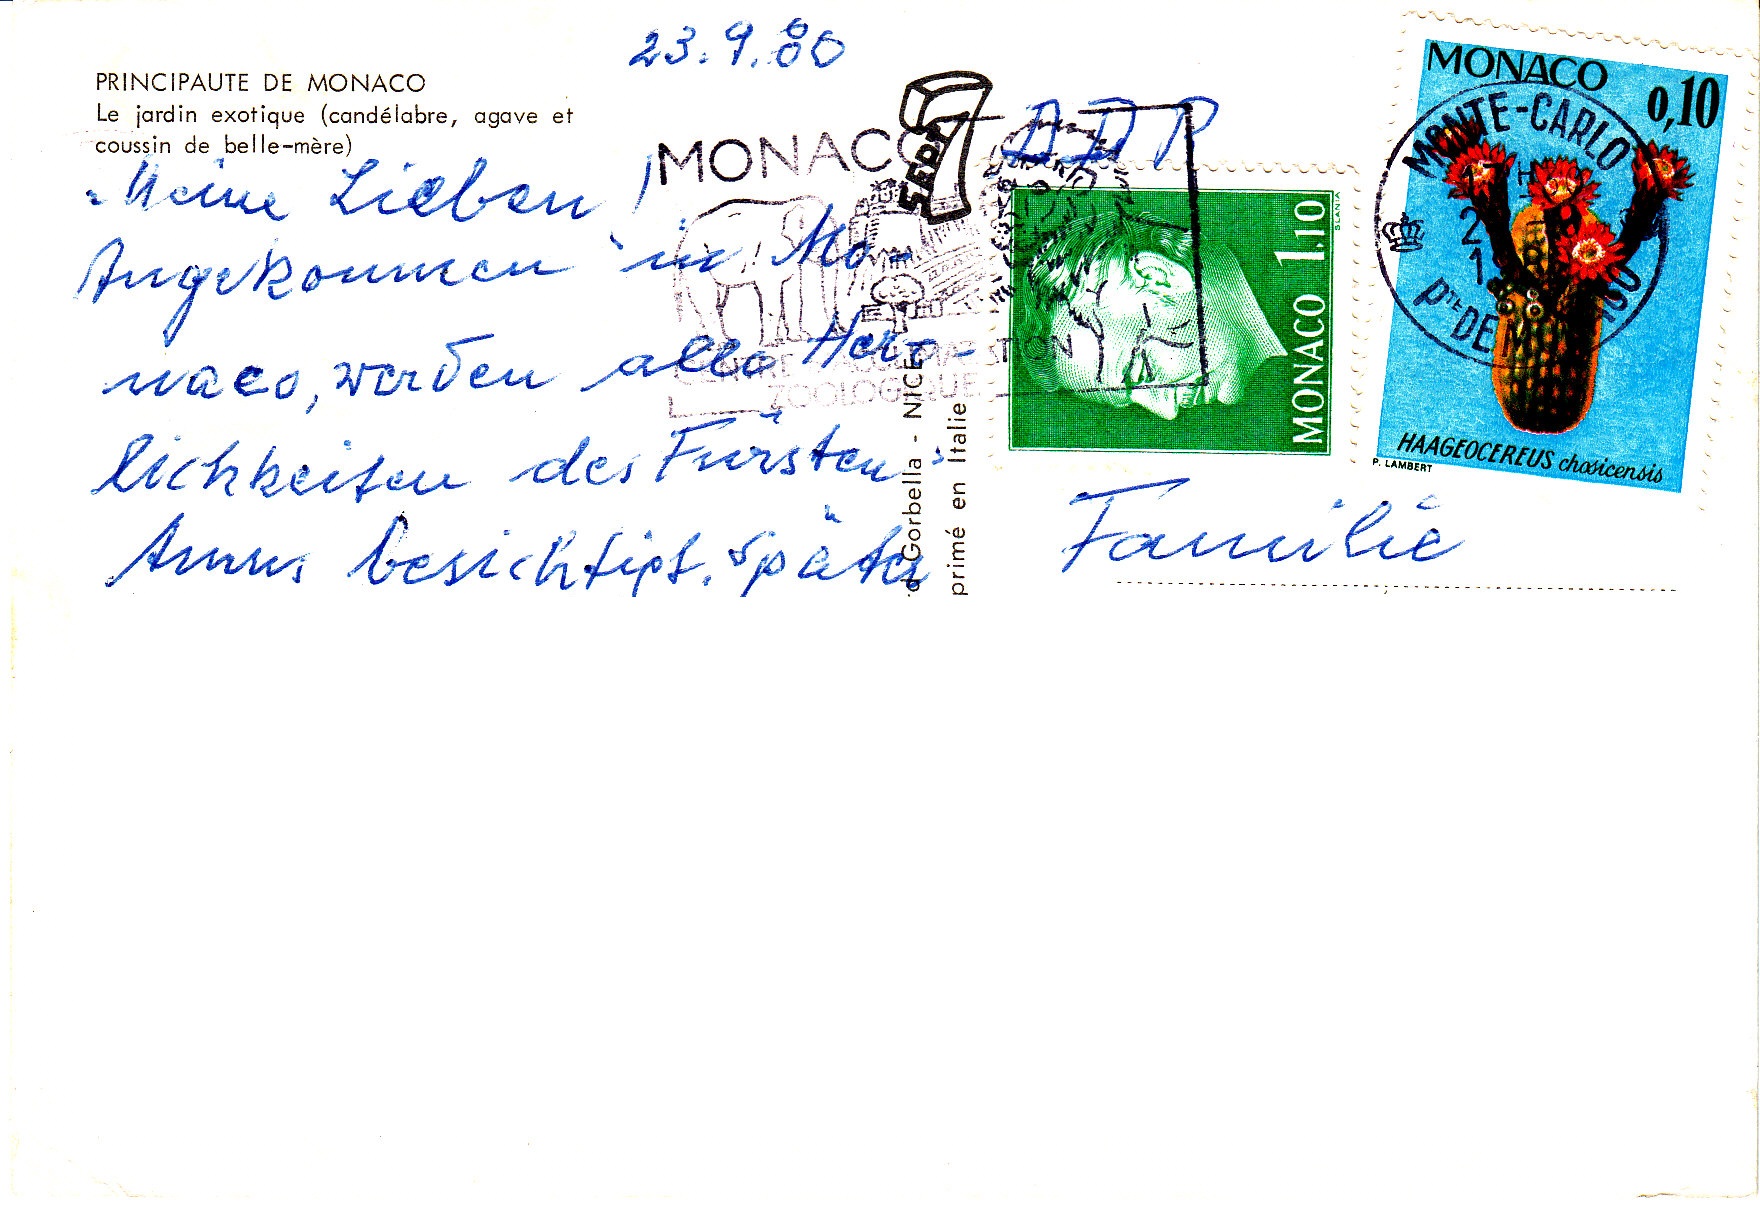 23.9.80
PRINCIPAUTE DE MONACO
Le jardin exotique (candélabre, agave et
coussin de belle-mère)
Meine Lieben!
Angekommen in Mo-
naco, werden alle Herr-
lichkeiten des Fürsten-
tums besichtigt. Später
MONACO
SEPT
CENTRE D'ACCLIMATATION
ZOOLOGIQUE
Gorbella - NICE
primé en Italie
DDR
MONACO 1.10
SLANIA
MONACO
0,10
MONTE-CARLO
HAAGEOCEREUS chosicensis
P. LAMBERT
Familie